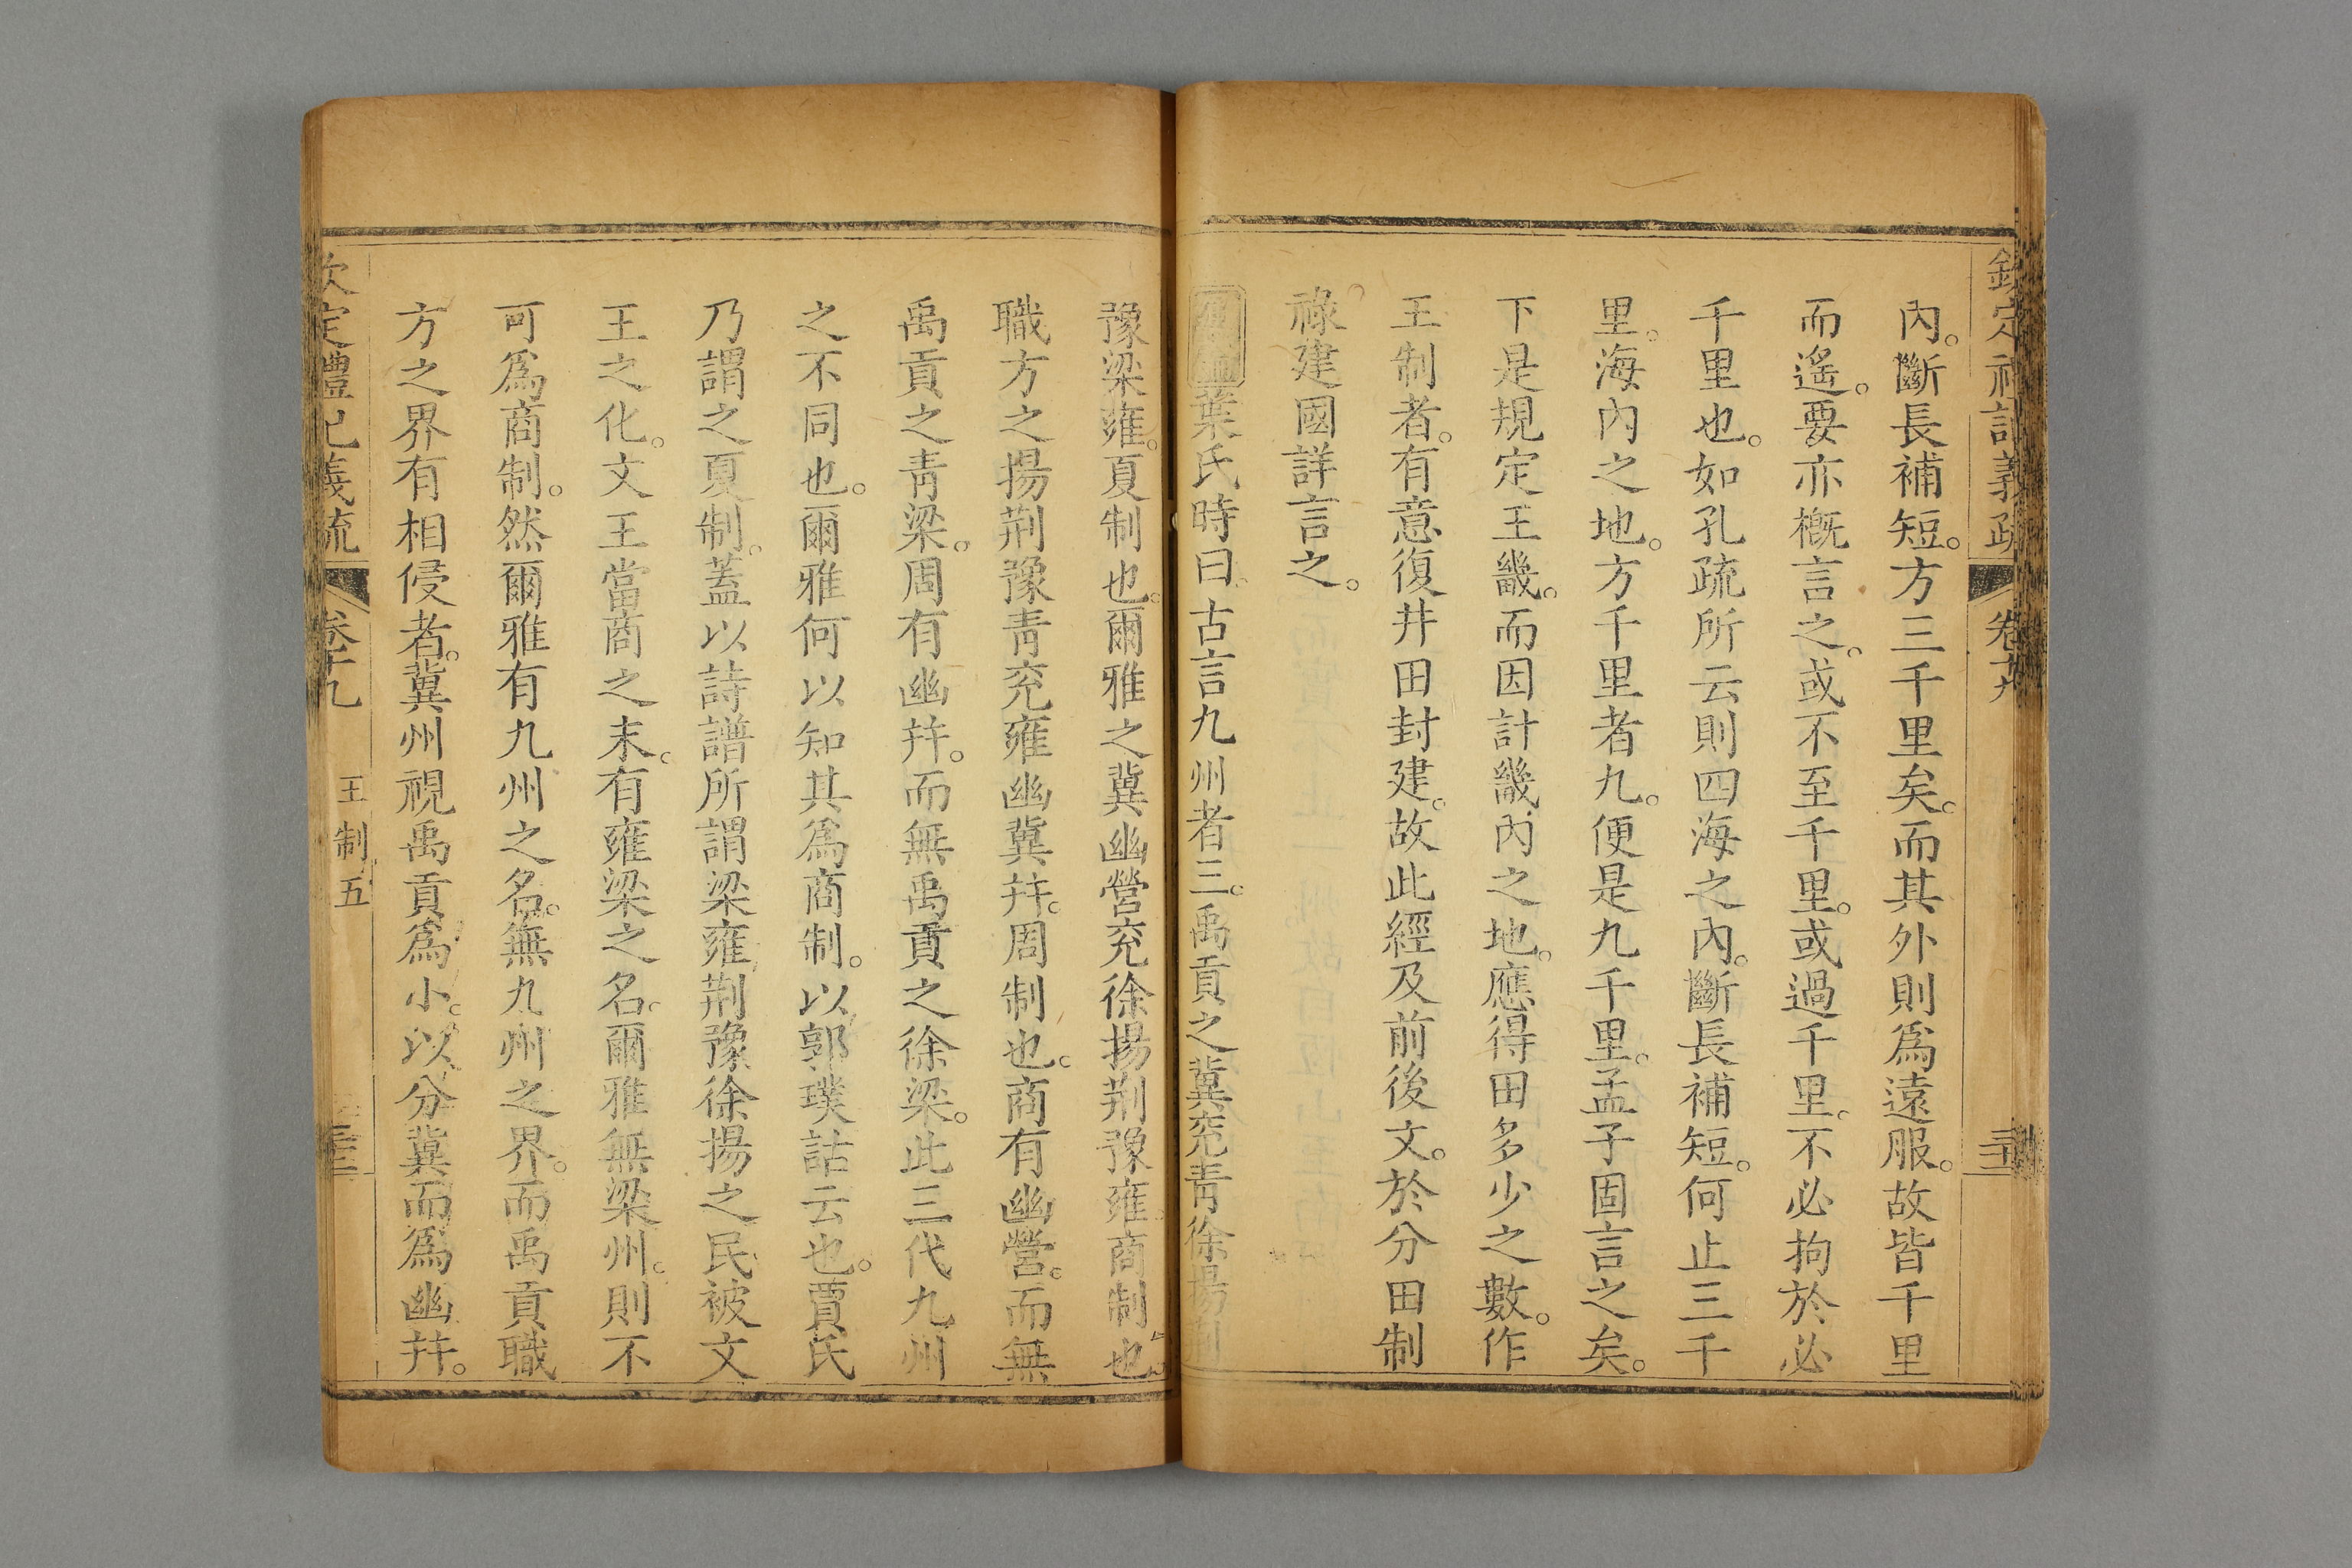 欽定禮記義疏 卷十九
內。斷長補短。方三千里矣。而其外則爲遠服。故皆千里
而遙。要亦概言之。或不至千里。或過千里。不必拘於必
千里也。如孔疏所云則四海之內。斷長補短。何止三千
里。海內之地。方千里者九。便是九千里。孟子固言之矣。
下是規定王畿。而因計畿內之地。應得田多少之數。作
王制者。有意復井田封建。故此經及前後文。於分田制
祿。建國詳言之。
葉氏時曰。古言九州者三。禹貢之冀兗靑徐揚荆
豫梁雍。夏制也。爾雅之冀幽營兗徐揚荆豫雍。商制也。
職方之揚荆豫靑兗雍幽冀幷。周制也。商有幽營。而無
禹貢之靑梁。周有幽幷。而無禹貢之徐梁。此三代九州
之不同也。爾雅何以知其爲商制。以郭璞詁云也。賈氏
乃謂之夏制。蓋以詩譜所謂梁雍荆豫徐揚之民被文
王之化。文王當商之末。有雍梁之名。爾雅無梁州。則不
可爲商制。然爾雅有九州之名。無九州之界。而禹貢職
方之界有相侵者。冀州視禹貢爲小。以分冀而爲幽幷。
欽定禮記義疏 卷十九 王制五